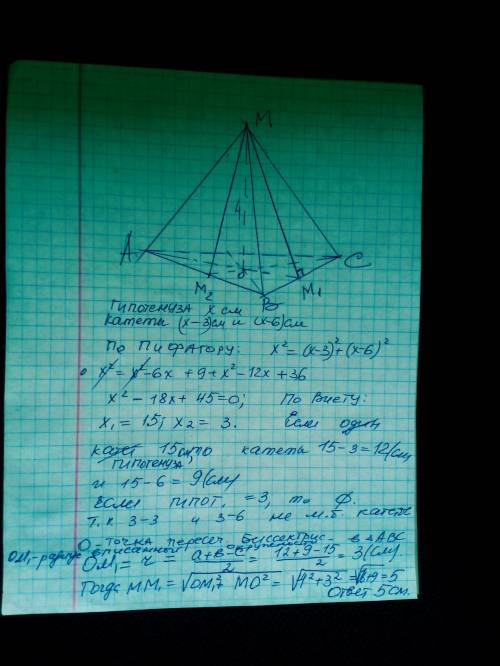 M
4
A
C
O
M₂
B
M₁
Гипотенуза x см
катеты (x-3)см и (x-6)см
По Пифагору: x² = (x-3)² + (x-6)²
x² = x² - 6x + 9 + x² - 12x + 36
x² - 18x + 45 = 0; По Виету:
x₁ = 15; x₂ = 3. Если один
катет 15см, то катеты 15-3 = 12(см)
гипотенуза,
и 15-6 = 9(см)
Если гипот. = 3, то ∅.
т.к 3-3 и 3-6 не м.б. катеты
O - точка пересеч. биссектрис - в △ABC
OM₁ - радиус вписанной окружности
OM₁ = r = (a+b-c)/2 = (12+9-15)/2 = 3(см)
Тогда MM₁ = √(OM₁² + MO²) = √(4²+3²) = = 5
Ответ 5 см.